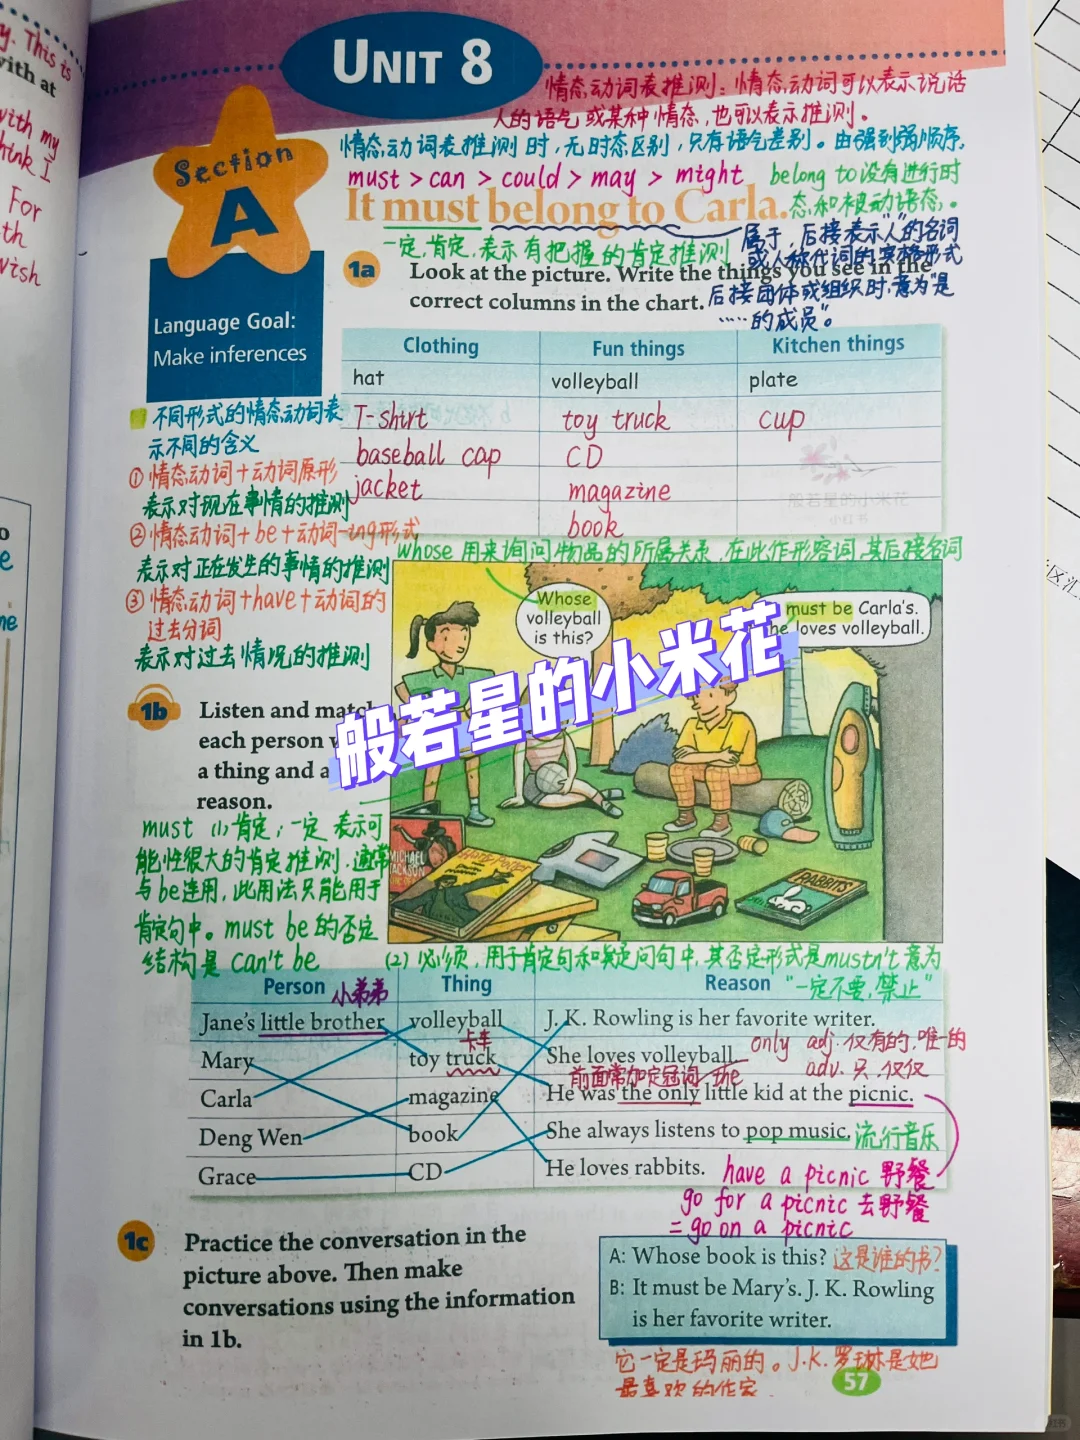 y. This is
with at
with my
think I
For
th
wish
UNIT 8
情态动词表推测：情态动词可以表示说话
人的语气或某种情态，也可以表示推测。
情态动词表推测时，无时态区别，只有语气差别。由强到弱顺序，
must > can > could > may > might
belong to没有进行时
态和被动语态。
Section
A
It must belong to Carla.
一定，肯定，表示有把握的肯定推测
属于，后接表示"人"的名词
或人称代词的宾格形式
后接团体或组织时，意为"是
……的成员"。
Language Goal:
Make inferences
1a
Look at the picture. Write the things you see in the
correct columns in the chart.
Clothing Fun things Kitchen things
hat volleyball plate
T-shirt toy truck cup
baseball cap CD
jacket magazine
book
般若星的小米花
小红书
不同形式的情态动词表
示不同的含义
①情态动词+动词原形
表示对现在事情的推测
②情态动词+be+动词-ing形式
表示对正在发生的事情的推测
③情态动词+have+动词的
过去分词
表示对过去情况的推测
whose 用来询问物品的所属关系，在此作形容词，其后接名词
Whose
volleyball
is this?
must be Carla's.
he loves volleyball.
般若星的小米花
1b
Listen and match
each person
a thing and a
reason.
must (1)肯定；一定 表示可
能性很大的肯定推测，通常
与be连用，此用法只能用于
肯定句中。must be 的否定
结构是 can't be
MICHAEL
JACKSON
HARRY POTTER
RABBITS
(2) 必须，用于肯定句和疑问句中，其否定形式是mustn't 意为
"一定不要，禁止"
Person Thing Reason
小弟弟
Jane's little brother volleyball J. K. Rowling is her favorite writer.
卡车
Mary toy truck She loves volleyball.
only adj. 仅有的，唯一的
adv. 只，仅仅
前面常加定冠词 the
Carla magazine He was the only little kid at the picnic.
Deng Wen book She always listens to pop music. 流行音乐
Grace CD He loves rabbits.
have a picnic 野餐
go for a picnic 去野餐
= go on a picnic
1c
Practice the conversation in the
picture above. Then make
conversations using the information
in 1b.
A: Whose book is this? 这是谁的书?
B: It must be Mary's. J. K. Rowling
is her favorite writer.
它一定是玛丽的。J.K. 罗琳是她
最喜欢的作家
57